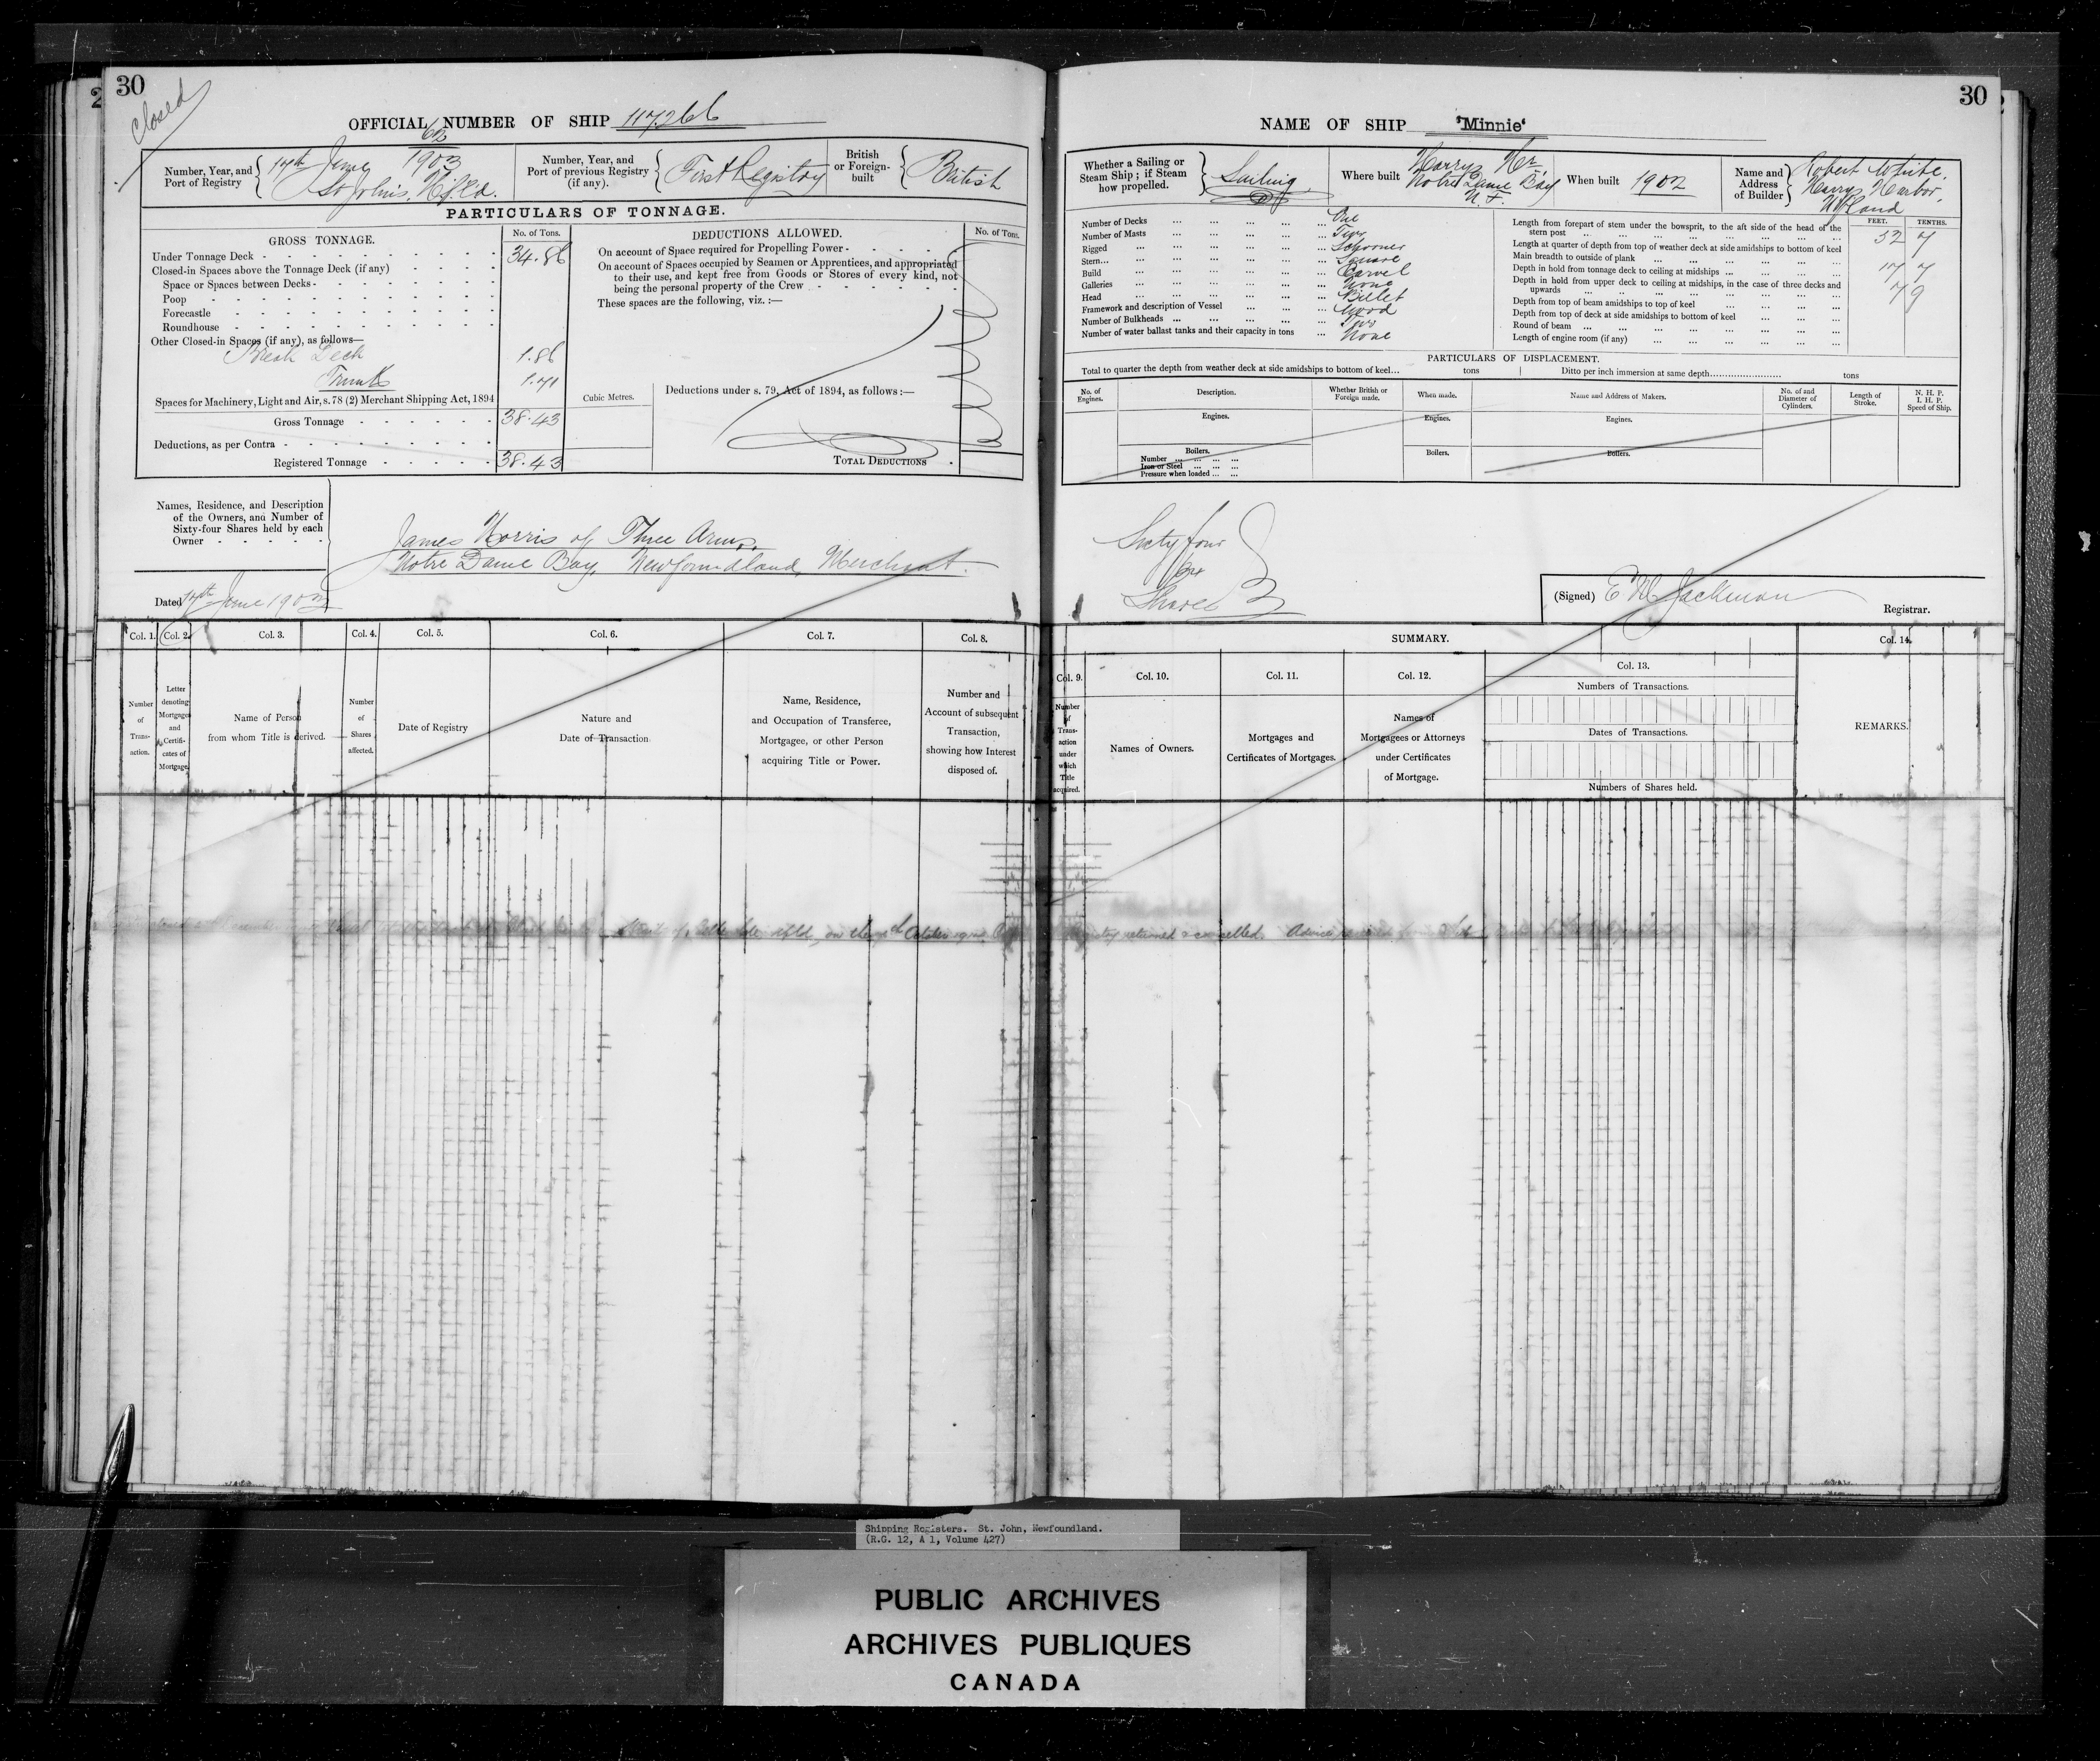 30
Closed
OFFICIAL NUMBER OF SHIP 117266
Number, Year, and Port of Registry
62
1903
17th June
St Johns, Nfld.
Number, Year, and Port of previous Registry (if any).
First Registry
British or Foreign-built
British
PARTICULARS OF TONNAGE.
GROSS TONNAGE.
No. of Tons.
Under Tonnage Deck - 34.86
Closed-in Spaces above the Tonnage Deck (if any)
Space or Spaces between Decks -
Poop
Forecastle
Roundhouse
Other Closed-in Spaces (if any), as follows—
Break Deck 1.86
Trunk 1.71
Spaces for Machinery, Light and Air, s. 78 (2) Merchant Shipping Act, 1894
Gross Tonnage 38.43
Deductions, as per Contra
Registered Tonnage 38.43
Cubic Metres.
DEDUCTIONS ALLOWED.
No. of Tons.
On account of Space required for Propelling Power -
On account of Spaces occupied by Seamen or Apprentices, and appropriated
to their use, and kept free from Goods or Stores of every kind, not
being the personal property of the Crew
These spaces are the following, viz. :—
Deductions under s. 79, Act of 1894, as follows :—
TOTAL DEDUCTIONS
Names, Residence, and Description
of the Owners, and Number of
Sixty-four Shares held by each
Owner
James Norris of Three Arms,
Notre Dame Bay, Newfoundland, Merchant.
Dated 17th June 1903
Col. 1.
Col. 2.
Col. 3.
Col. 4.
Col. 5.
Col. 6.
Col. 7.
Col. 8.
Number of Trans-action.
Letter denoting Mortgages and Certifi-cates of Mortgage.
Name of Person from whom Title is derived.
Number of Shares affected.
Date of Registry
Nature and Date of Transaction
Name, Residence, and Occupation of Transferee, Mortgagee, or other Person acquiring Title or Power.
Number and Account of subsequent Transaction, showing how Interest disposed of.
30
NAME OF SHIP "Minnie"
Whether a Sailing or Steam Ship ; if Steam how propelled.
Sailing
Where built
Harrys Hr
Notre Dame Bay
N.F.
When built 1902
Name and Address of Builder
Robert White.
Harrys Harbor,
Nfland
Number of Decks ... One
Number of Masts ... Two
Rigged ... Schooner
Stern ... Square
Build ... Carvel
Galleries ... None
Head ... Billet
Framework and description of Vessel ... Wood
Number of Bulkheads ... Two
Number of water ballast tanks and their capacity in tons ... None
FEET. TENTHS.
Length from forepart of stem under the bowsprit, to the aft side of the head of the
stern post ... 52 7
Length at quarter of depth from top of weather deck at side amidships to bottom of keel
Main breadth to outside of plank ... 17 7
Depth in hold from tonnage deck to ceiling at midships ... 7 9
Depth in hold from upper deck to ceiling at midships, in the case of three decks and
upwards
Depth from top of beam amidships to top of keel
Depth from top of deck at side amidships to bottom of keel
Round of beam
Length of engine room (if any)
PARTICULARS OF DISPLACEMENT.
Total to quarter the depth from weather deck at side amidships to bottom of keel... tons
Ditto per inch immersion at same depth... tons
No. of Engines.
Description.
Whether British or Foreign made.
When made.
Name and Address of Makers.
No. of and Diameter of Cylinders.
Length of Stroke.
N. H. P. I. H. P. Speed of Ship.
Engines.
Engines.
Engines.
Boilers.
Number
Iron or Steel
Pressure when loaded
Boilers.
Boilers.
Sixty four
64
Shares
(Signed) E M Jackman
Registrar.
SUMMARY.
Col. 9.
Col. 10.
Col. 11.
Col. 12.
Col. 13.
Col. 14.
Number of Trans-action under which Title acquired.
Names of Owners.
Mortgages and Certificates of Mortgages.
Names of Mortgagees or Attorneys under Certificates of Mortgage.
Numbers of Transactions.
Dates of Transactions.
Numbers of Shares held.
REMARKS.
Nfld, on the October
returned & cancelled. Advice
Shipping Registers. St. John, Newfoundland.
(R.G. 12, A 1, Volume 427)
PUBLIC ARCHIVES
ARCHIVES PUBLIQUES
CANADA